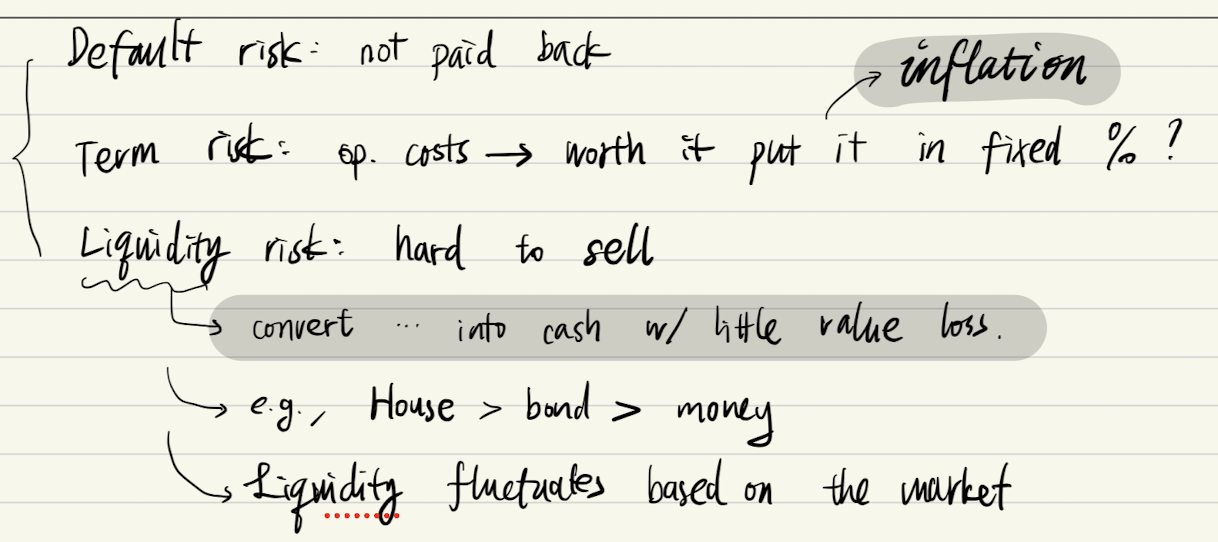 Default risk: not paid back
inflation
Term risk: op. costs → worth it put it in fixed % ?
Liquidity risk: hard to sell
convert ... into cash w/ little value loss.
e.g., House > bond > money
Liquidity fluctuates based on the market